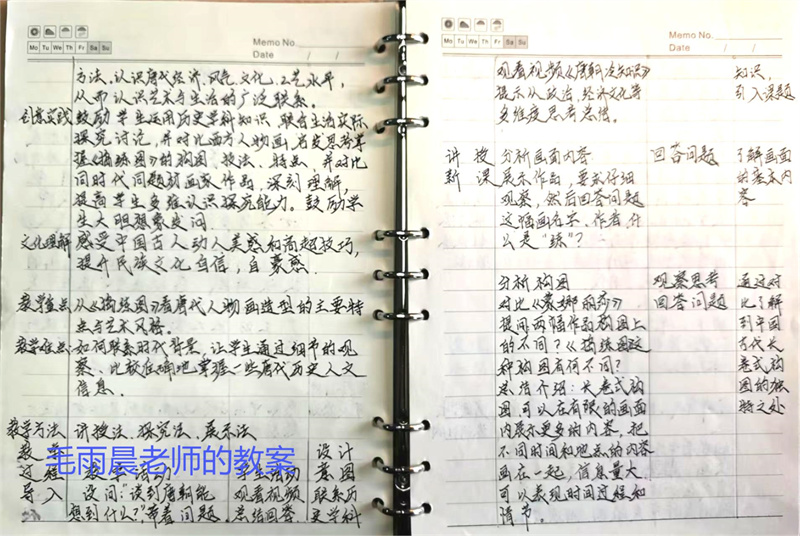 Mo Tu We Th Fr Sa Su
Memo No.
Date / /
方法、认识唐代经济、风气、文化、工艺水平,
从而认识艺术与生活的广泛联系。
创意实践 鼓励学生运用历史学科知识,联系生活实际
探究讨论,并对比西方人物画,启发思考掌
握《捣练图》的构图、技法、特点,并对比
同时代同题材画家作品,深刻理解,
提高学生多维认识探究能力,鼓励学
生大胆想象发问
文化理解 感受中国古人动人美感和高超技巧,
提升民族文化自信,自豪感.
教学重点 从《捣练图》看唐代人物画造型的主要特
点与艺术风格。
教学难点 如何联系时代背景,让学生通过细节的观
察、比较准确地掌握一些唐代历史人文
信息.
教学方法 讲授法、探究法、展示法
教学 设计
过程 教学活动 学生活动 意图
导入 设问:谈到唐朝能 观看视频 联系历
想到什么?带着问题 总结回答 史学科
毛雨晨老师的教案
Mo Tu We Th Fr Sa Su
Memo No.
Date / /
观看视频《唐朝冷知识》 知识,
提示从政治、经济文化等 引入课题
多维度思考总结。
讲授 分析画面内容 回答问题 了解画面
新课 展示作品,要求仔细 的基本内
观察,然后回答问题 容
这幅画名字、作者、什
么是"练"?
分析构图 观察思考 通过对
对比《蒙娜丽莎》 回答问题 比了解
提问两幅作品构图上 到中国
的不同?《捣练图》这 古代长
种构图有何不同? 卷式构
总结介绍:长卷式构 图的独
图可以在有限的画面 特之处
内展示更多的内容,把
不同时间和地点的内容
画在一起,信息量大,
可以表现时间过程和
情节。